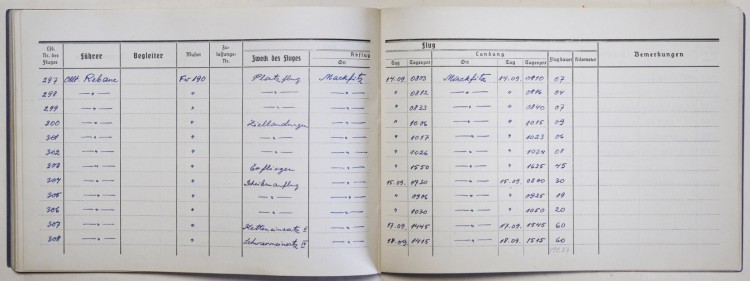 Flug
Lfd. Nr. des Fluges Führer Begleiter Muster Zulassungs-Nr. Zweck des Fluges Abflug Ort Tag Tageszeit Landung Ort Tag Tageszeit Flugdauer Kilometer Bemerkungen
297 Rebane Fw 190 Platzflug Mackfitz 14.09. 0803 Mackfitz 14.09. 0810 07
298 —"— " —"— —"— " 0812 —"— " 0816 04
299 —"— " —"— —"— " 0833 —"— " 0840 07
300 —"— " Ziellandungen —"— " 1006 —"— " 1015 09
301 —"— " —"— —"— " 1017 —"— " 1023 06
302 —"— " —"— —"— " 1026 —"— " 1034 08
303 —"— " —"— " 1550 —"— " 1625 45
304 —"— " —"— 15.09. —"— 15.09. 30
305 —"— " —"— —"— " 1906 —"— " 1925 19
306 —"— " —"— —"— " 1030 —"— " 1050 20
307 —"— " Ketteneinsatz —"— 17.09. 1445 —"— 17.09. 1545 60
308 —"— " Schwarmeinsatz —"— 18.09. 1415 —"— 18.09. 1515 60